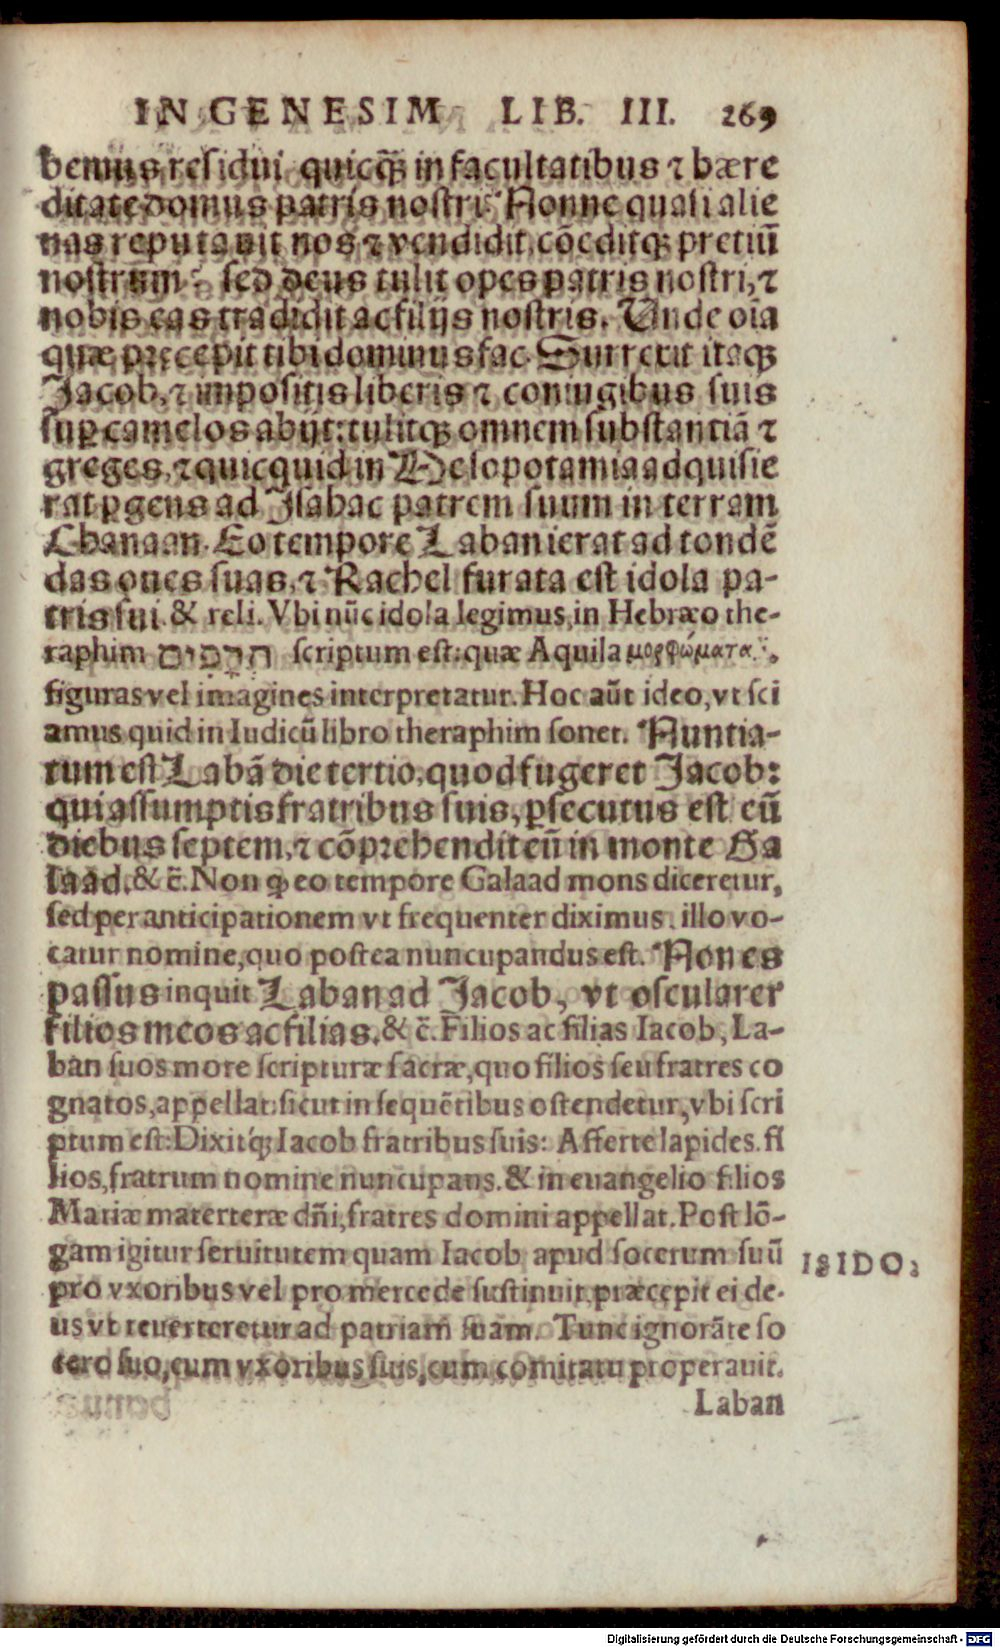 IN GENESIM LIB. III. 269
bemus residui quicq̃ in facultatibus ⁊ hære
ditate domus patris nostri? Nonne quasi alie
nas reputauit nos ⁊ vendidit, cōeditq; pretiū
nostrum? sed deus tulit opes patris nostri, ⁊
nobis eas tradidit ac filijs nostris. Unde oīa
quæ precepit tibi dominus fac. Surrexit itaq;
Jacob, ⁊ impositis liberis ⁊ coniugibus suis
suꝑ camelos abijt: tulitq; omnem substantiā ⁊
greges, ⁊ quicquid in Mesopotamia adquisie
rat ꝑgens ad Isahac patrem suum in terram
Chanaan. Eo tempore Laban ierat ad tondē
das oues suas, ⁊ Rachel furata est idola pa-
tris sui. & reli. Vbi nūc idola legimus, in Hebræo the-
raphim תרפים scriptum est: quæ Aquila μορφώματα.
figuras vel imagines interpretatur. Hoc aūt ideo, vt sci
amus quid in Iudicū libro theraphim sonet. Nuntia-
tum est Labā die tertio, quod fugeret Jacob:
qui assumptis fratribus suis, ꝑsecutus est eū
diebus septem, ⁊ cōprehendit eū in monte Ga
laad, & c̄. Non ꝙ eo tempore Galaad mons diceretur,
sed per anticipationem vt frequenter diximus. illo vo-
catur nomine, quo postea nuncupandus est. Non es
passus inquit Laban ad Jacob, vt oscularer
filios meos ac filias. & c̄. Filios ac filias Iacob, La-
ban suos more scripturæ sacræ, quo filios seu fratres co
gnatos, appellat: sicut in sequētibus ostendetur, vbi scri
ptum est: Dixitq; Iacob fratribus suis: Afferte lapides. fi
lios, fratrum nomine nuncupans. & in euangelio filios
Mariæ materteræ dñi, fratres domini appellat. Post lō-
gam igitur seruitutem quam Iacob apud socerum suū
ISIDO:
pro vxoribus vel pro mercede sustinuit, præcepit ei de-
us vt reuerteretur ad patriam suam. Tunc ignorāte so
cero suo, cum vxoribus suis, cum comitatu properauit.
Laban
Digitalisierung gefördert durch die Deutsche Forschungsgemeinschaft - DFG